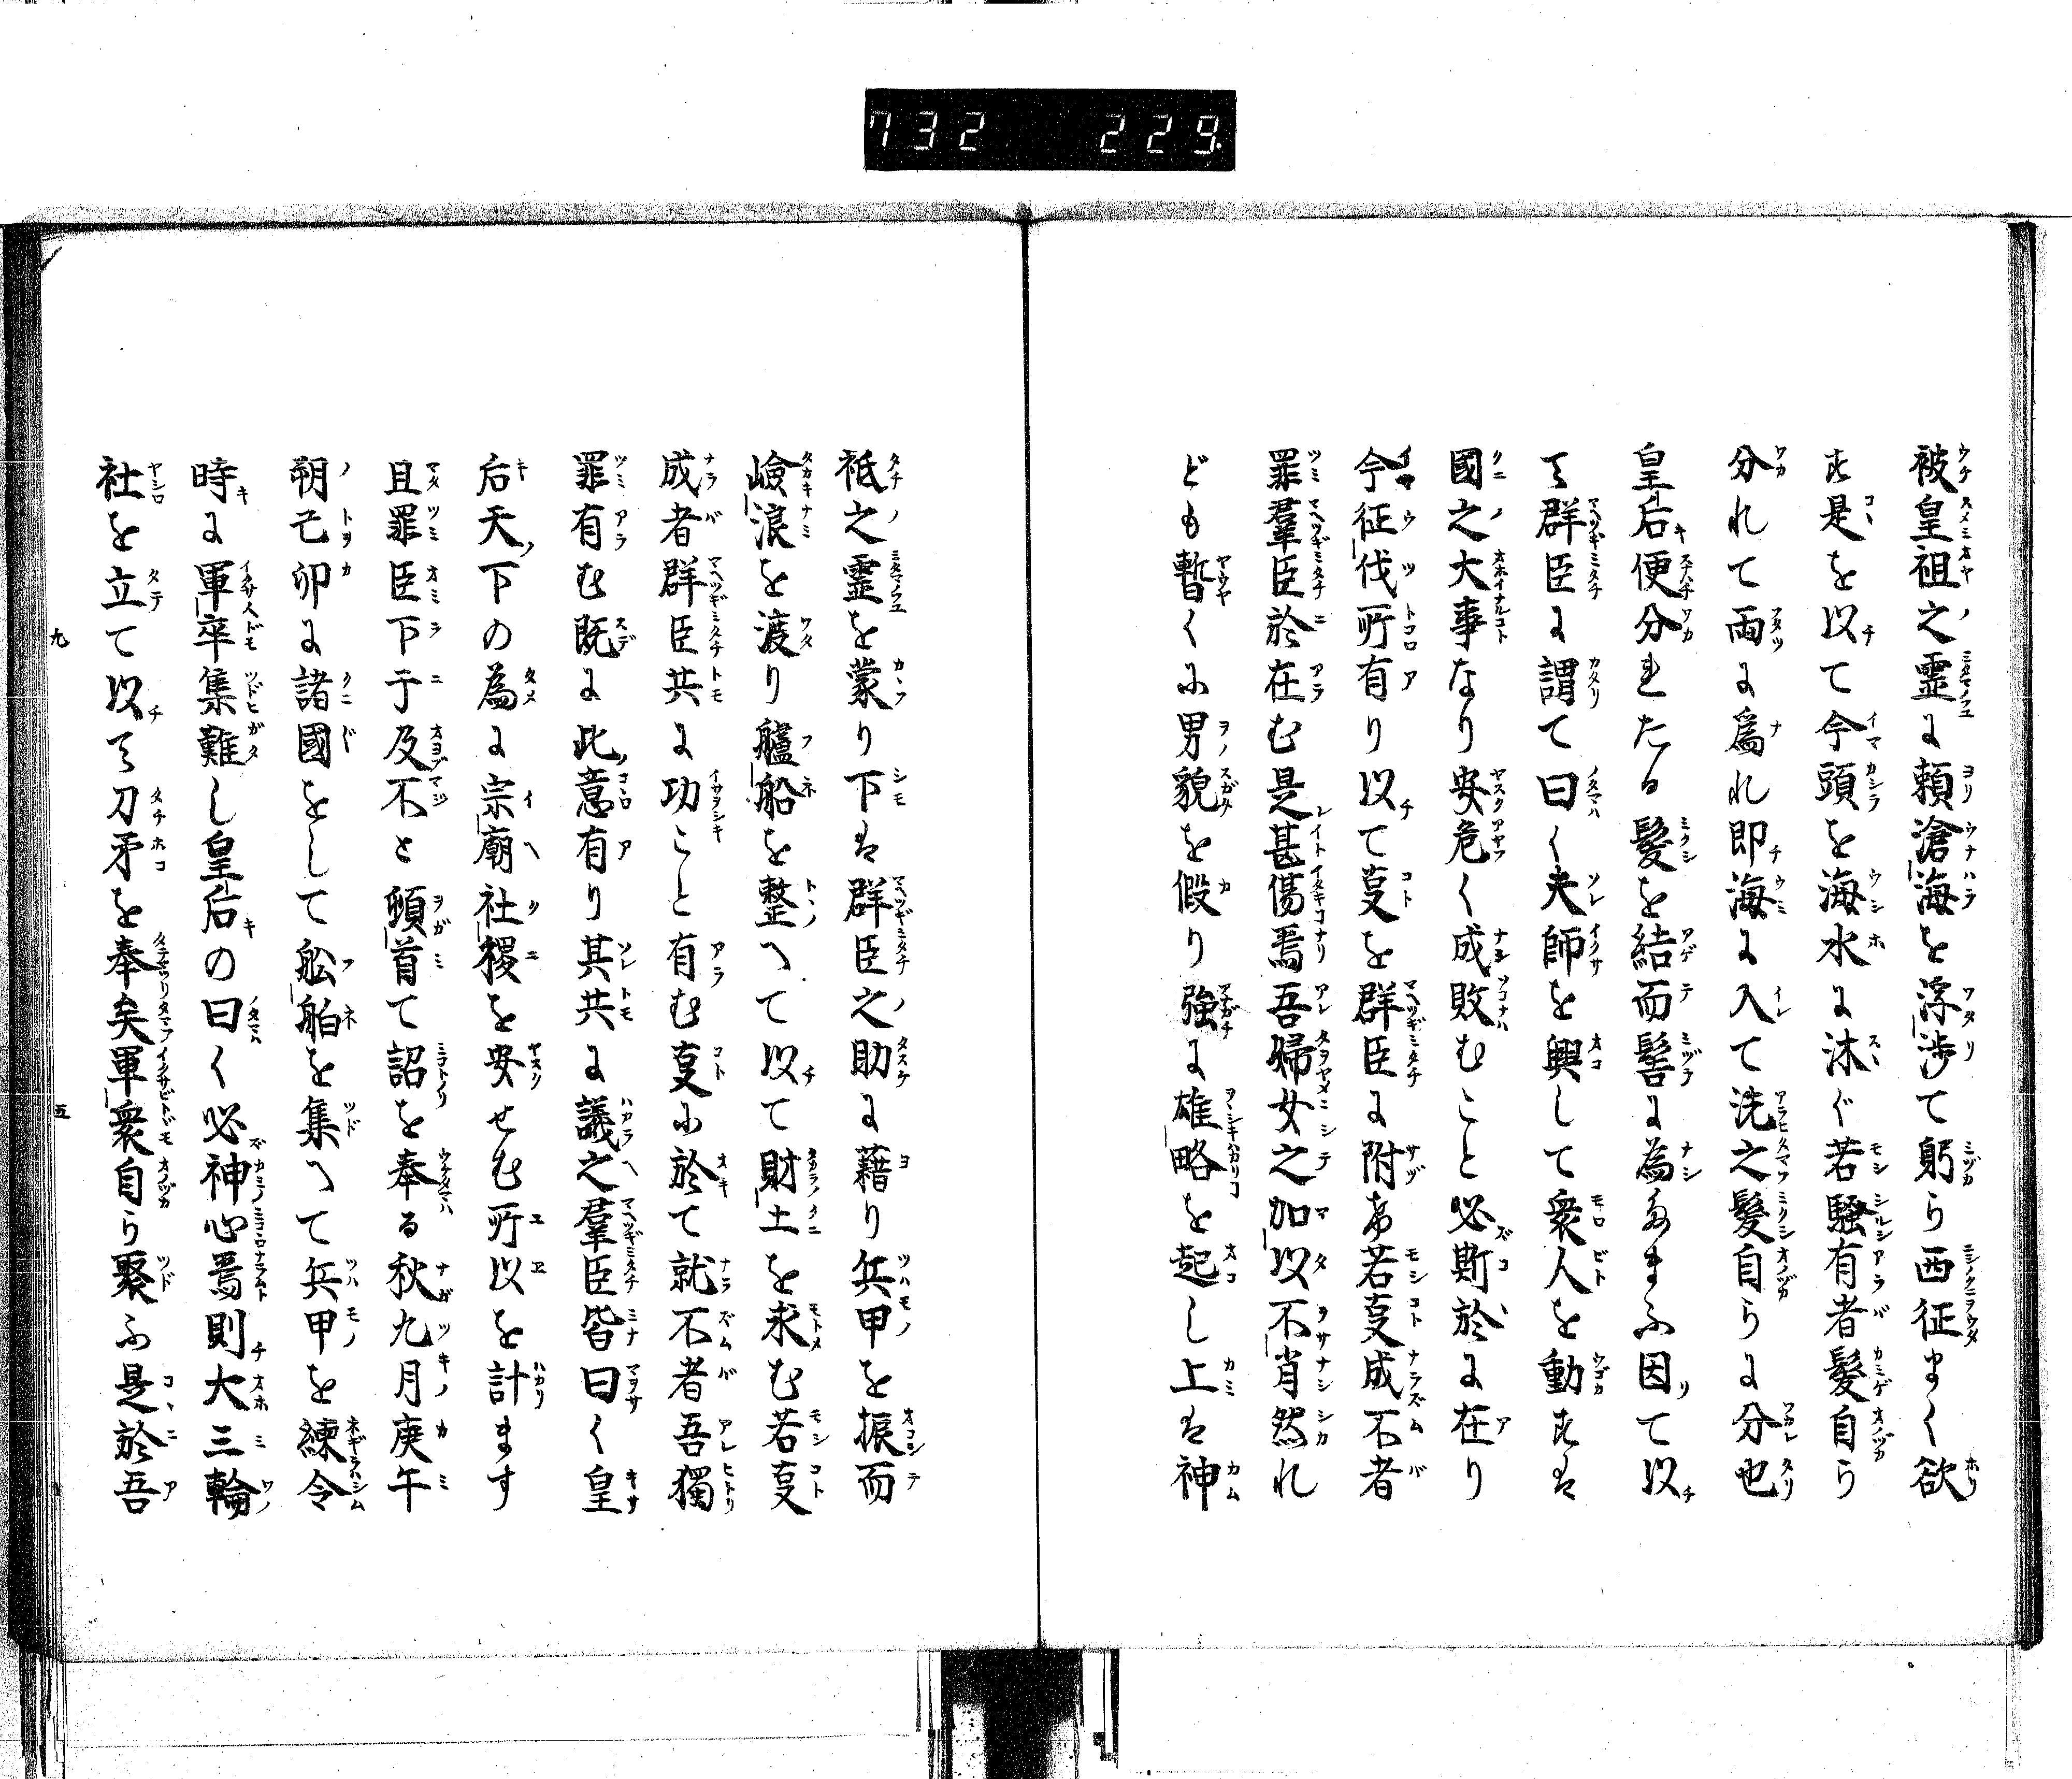 732 229.
被皇祖之霊に頼滄海を浮渉て躬ら西征まく欲
す是を以て今頭を海水に沐ぐ若驗有者髮自ら
分れて両に爲れ即海に入て洗之髮自らに分也
皇后便分れたる髮を結而髻に為たまふ因て以
て群臣に謂て曰く夫師を興して衆人を動すは
國之大事なり安危く成敗むこと必斯於に在り
今征伐所有り以て叓を群臣に附す若叓成不者
罪羣臣於在む是甚傷焉吾婦女之加以不肖然れ
ども暫くふ男貌を假り強に雄略を起し上は神
祇之霊を蒙り下は群臣之助に藉り兵甲を振而
嶮浪を渡り艫船を整へて以て財土を求む若叓
成者群臣共に功こと有む叓ふ於て就不者吾獨
罪有む既に此意有り其共に議之羣臣皆曰く皇
后天下の為に宗廟社稷を安せむ所以を計ます
且罪臣下于及不と頓首て詔を奉る秋九月庚午
朔己卯に諸國をして舩舶を集へて兵甲を練令
時に軍卒集難し皇后の曰く必神心焉則大三輪
社を立て以て刀矛を奉矣軍衆自ら聚ふ是於吾
九
五